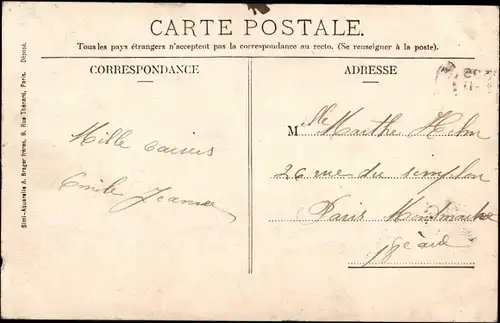 CARTE POSTALE.
Tous les pays étrangers n'acceptent pas la correspondance au recto. (Se renseigner à la poste).
CORRESPONDANCE
ADRESSE
Mille baisers
Emile Jeanne
Mlle Marthe Helm
26 rue du simplon
Paris Montmartre
Simi-Aquarelle A. Breger frères, 9, Rue Thénard, Paris. Déposé.